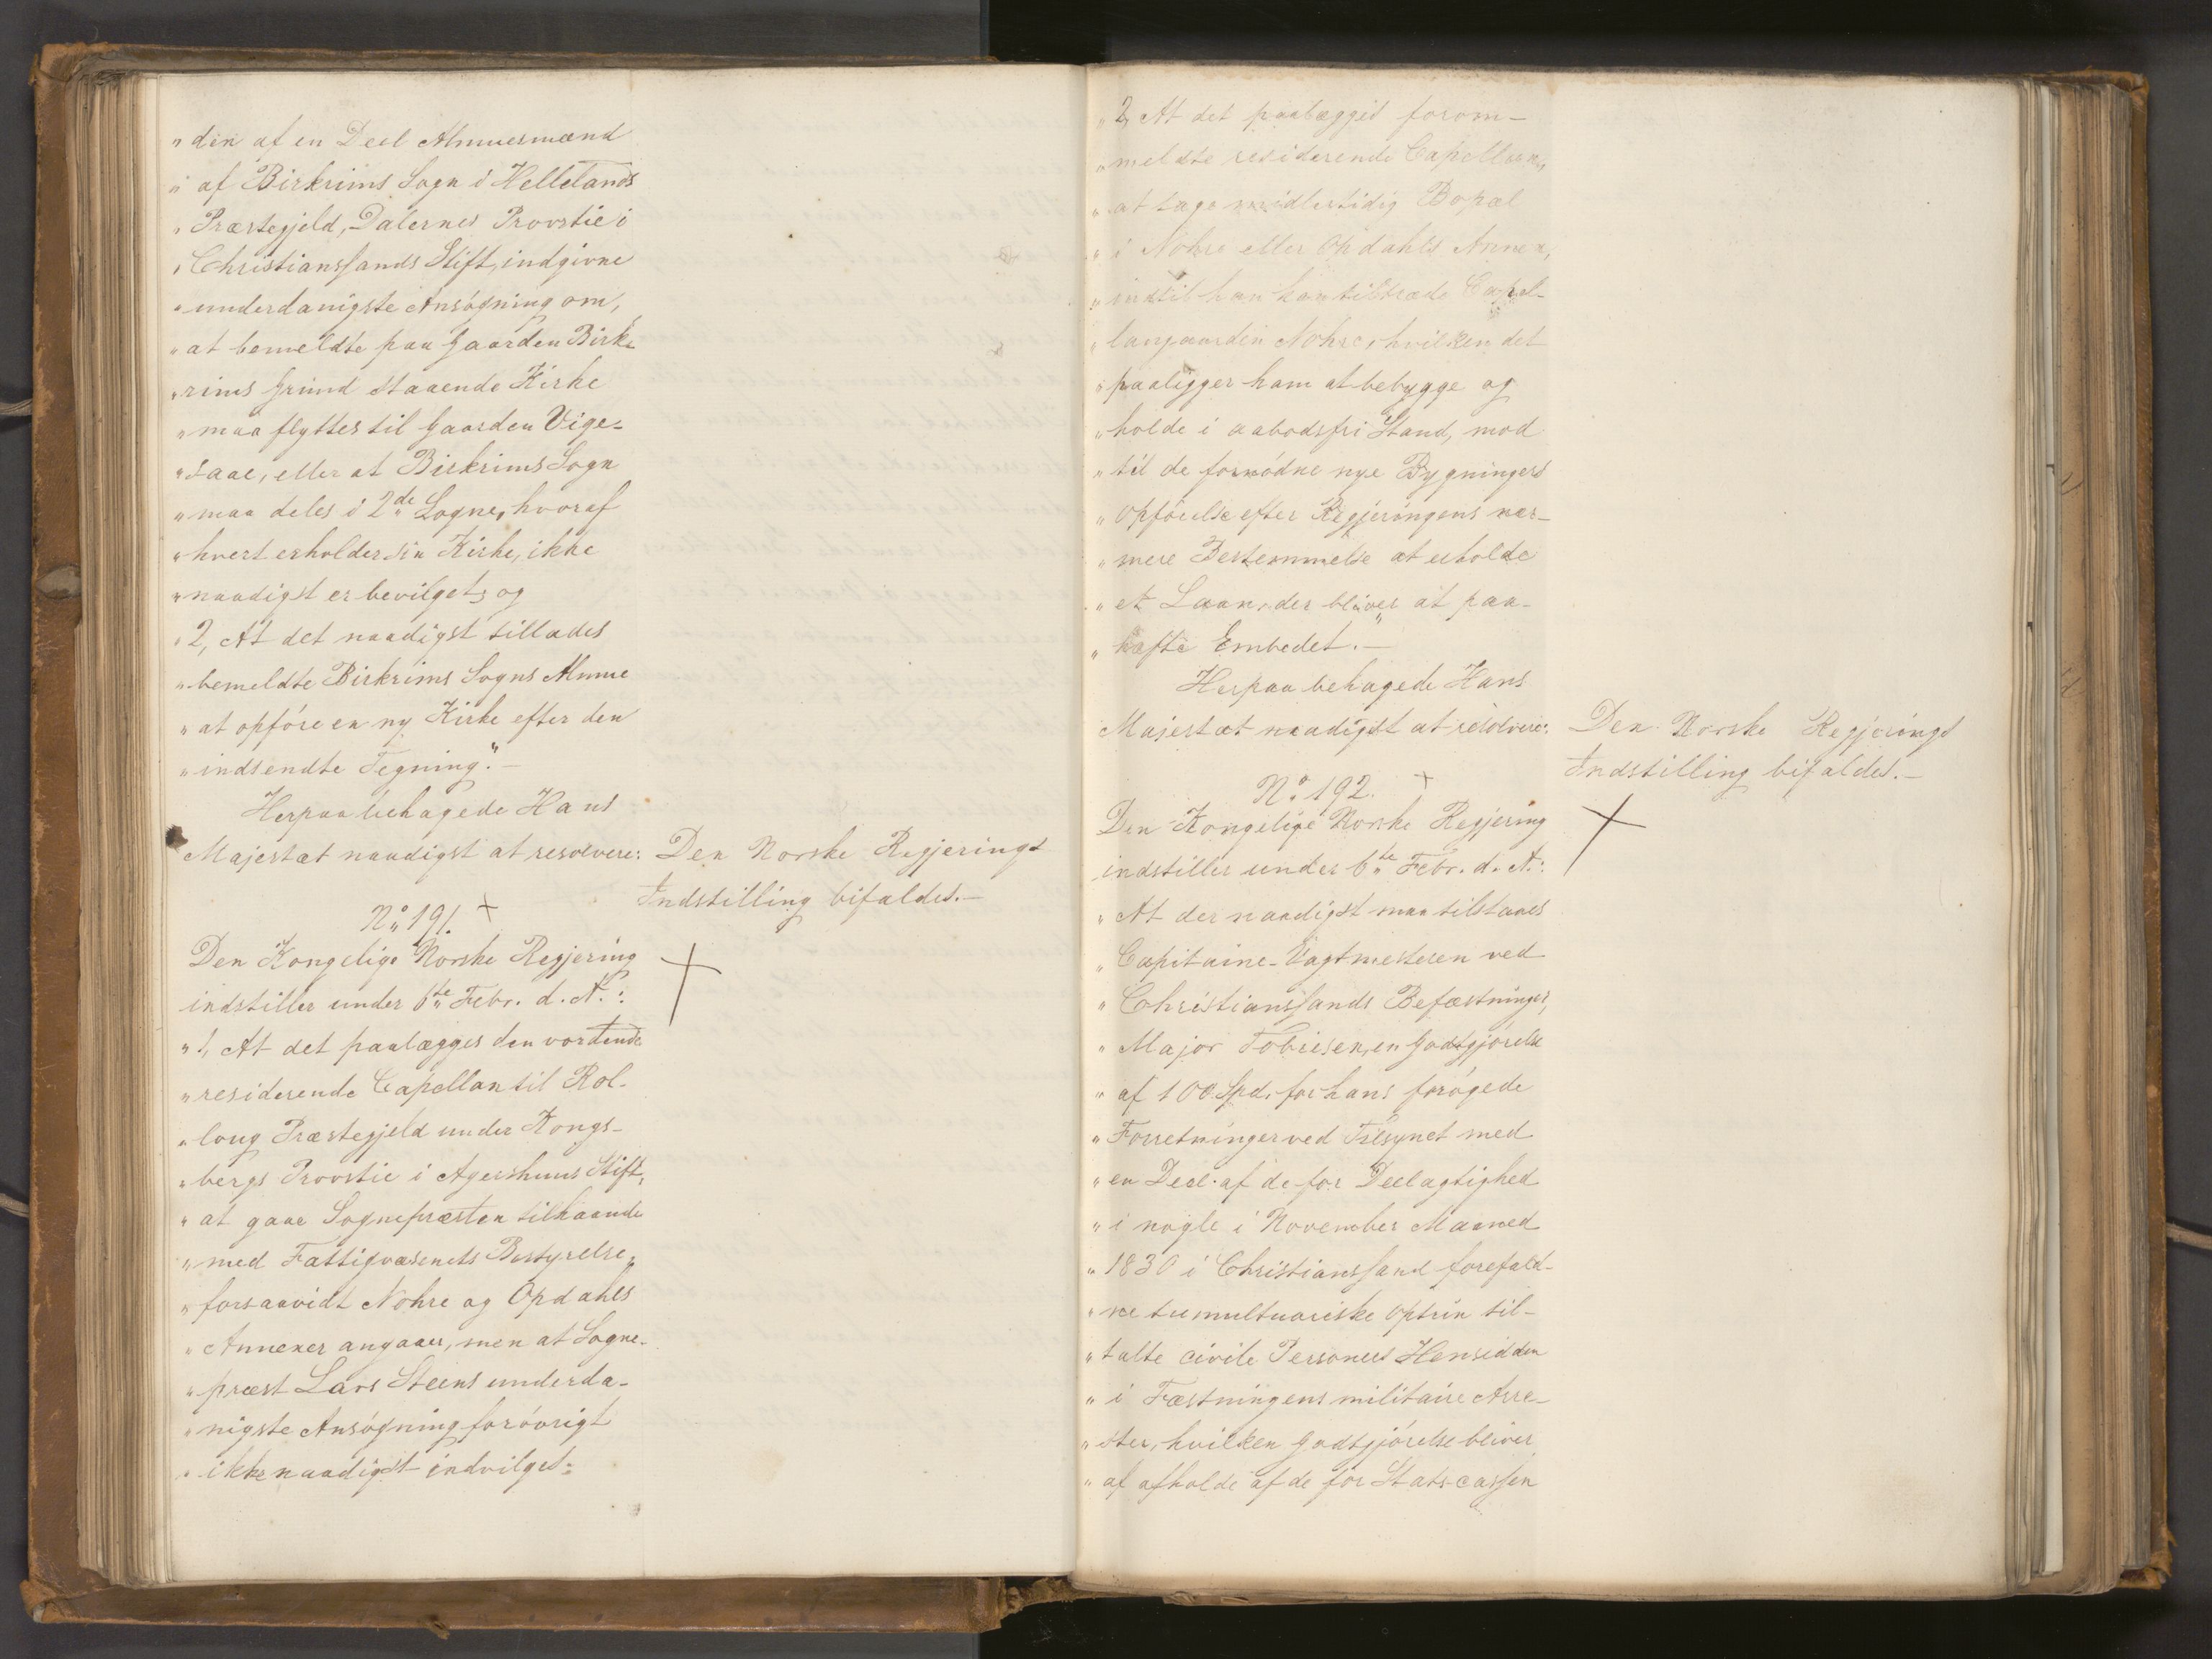 " den af en Deel Almuesmænd
" af Birkrims Sogn i Hellelands
" Præstegjeld, Dalernes Provstie i
" Christianssands Stift, indgivne
" underdanigste Ansøgning om,
" at bemeldte paa Gaarden Birk-
" rims Grund staaende Kirke
" maa flyttes til Gaarden Vige-
" saae, eller at Birkrims Sogn
" maa deles i 2de Sogne, hvoraf
" hvert erholder sin Kirke, ikke
" naadigst er bevilget; og
" 2, At det naadigst tillades
" bemeldte Birkrims Sogns Almue
" at opføre en ny Kirke efter den
" indsendte Tegning". —
Herpaa behagede Hans
Majestæt naadigst at resolvere:
Den Norske Regjerings
Indstilling bifaldes. —
No 191. +
Den Kongelige Norske Regjering
indstiller under 6te Febr. d. A.:
" 1, At det paalægges den vordende
" residerende Capellan til Rol-
" loug Præstegjeld under Kongs-
" bergs Provstie i Agershuus Stift,
" at gaae Sognepræsten tilhaande
" med Fattigvæsenets Bestyrelse,
" forsaavidt Nohre og Opdahls
" Annexer angaaer, men at Sogne-
" præst Lars Steens underda-
" nigste Ansøgning forøvrigt
" ikke naadigst indvilges:
" 2, At det paalægges forom-
" meldte residerende Capellan,
" at tage midlertidig Bopæl
" i Nohre eller Opdahls Annex,
" indtil han kan tiltræde Capel-
" langaarden Nohre, hvilken det
" paaligger ham at bebygge og
" holde i aabodsfri Stand, mod
" til de fornødne nye Bygningers
" Opførelse efter Regjeringens nær-
" mere Bestemmelse at erholde
" et Laan, der bliver at paa-
" hæfte Embedet". —
Herpaa behagede Hans
Majestæt naadigst at resolvere:
Den Norske Regjerings
Indstilling bifaldes. —
No 192. +
Den Kongelige Norske Regjering
indstiller under 6te Febr. d. A.:
" At der naadigst maa tilstaaes
" Capitaine-Vagtmesteren ved
" Christianssands Befæstninger,
" Major Tobiesen, en Godtgjørelse
" af 100 Spd. for hans forøgede
" Forretninger ved Tilsynet med
" en Deel af de for Deelagtighed
" i nogle i November Maaned
" 1830 i Christianssand forefald-
" ne tumultuariske Optrin til-
" talte civile Personers Hensidden
" i Fæstningens militaire Arre-
" ster, hvilken Godtgjørelse bliver
" af afholde af de for Stats-cassen